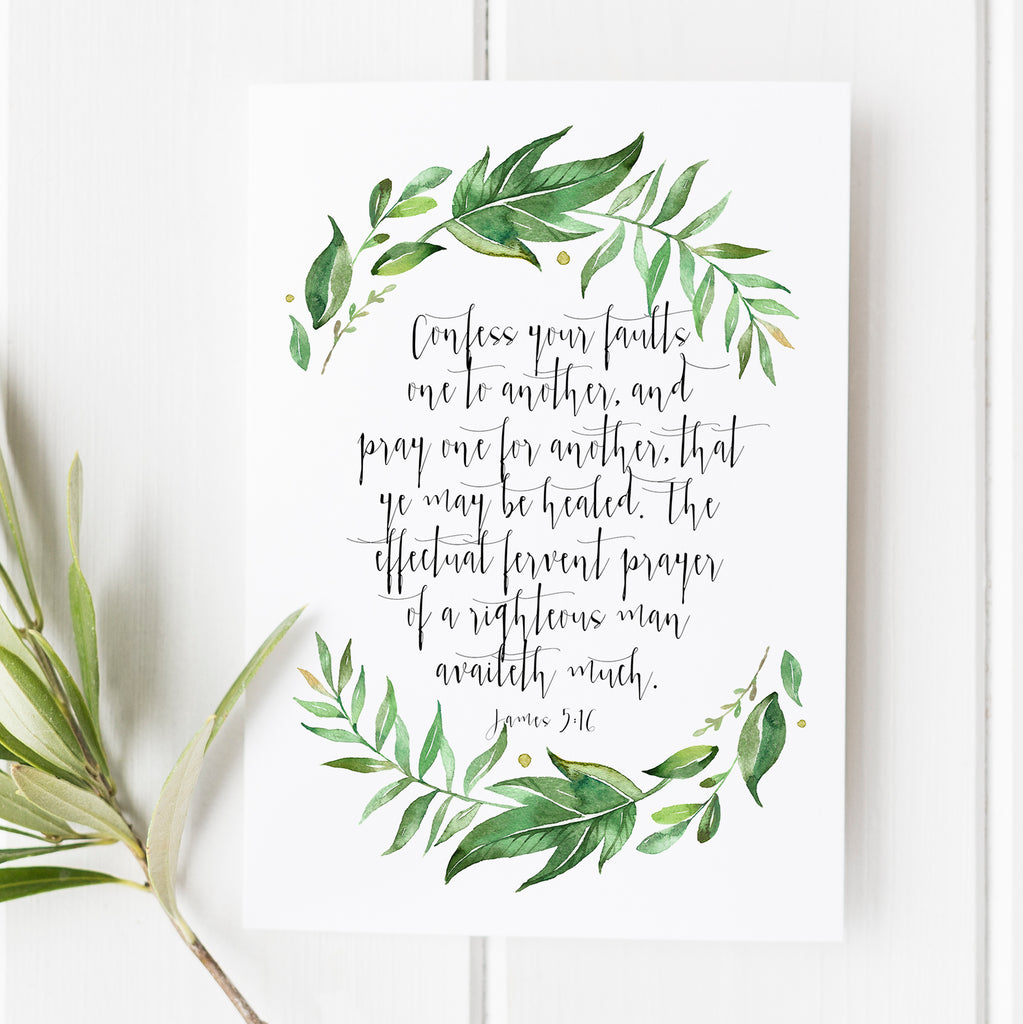 Confess your faults
one to another, and
pray one for another, that
ye may be healed. The
effectual fervent prayer
of a righteous man
availeth much.
James 5:16